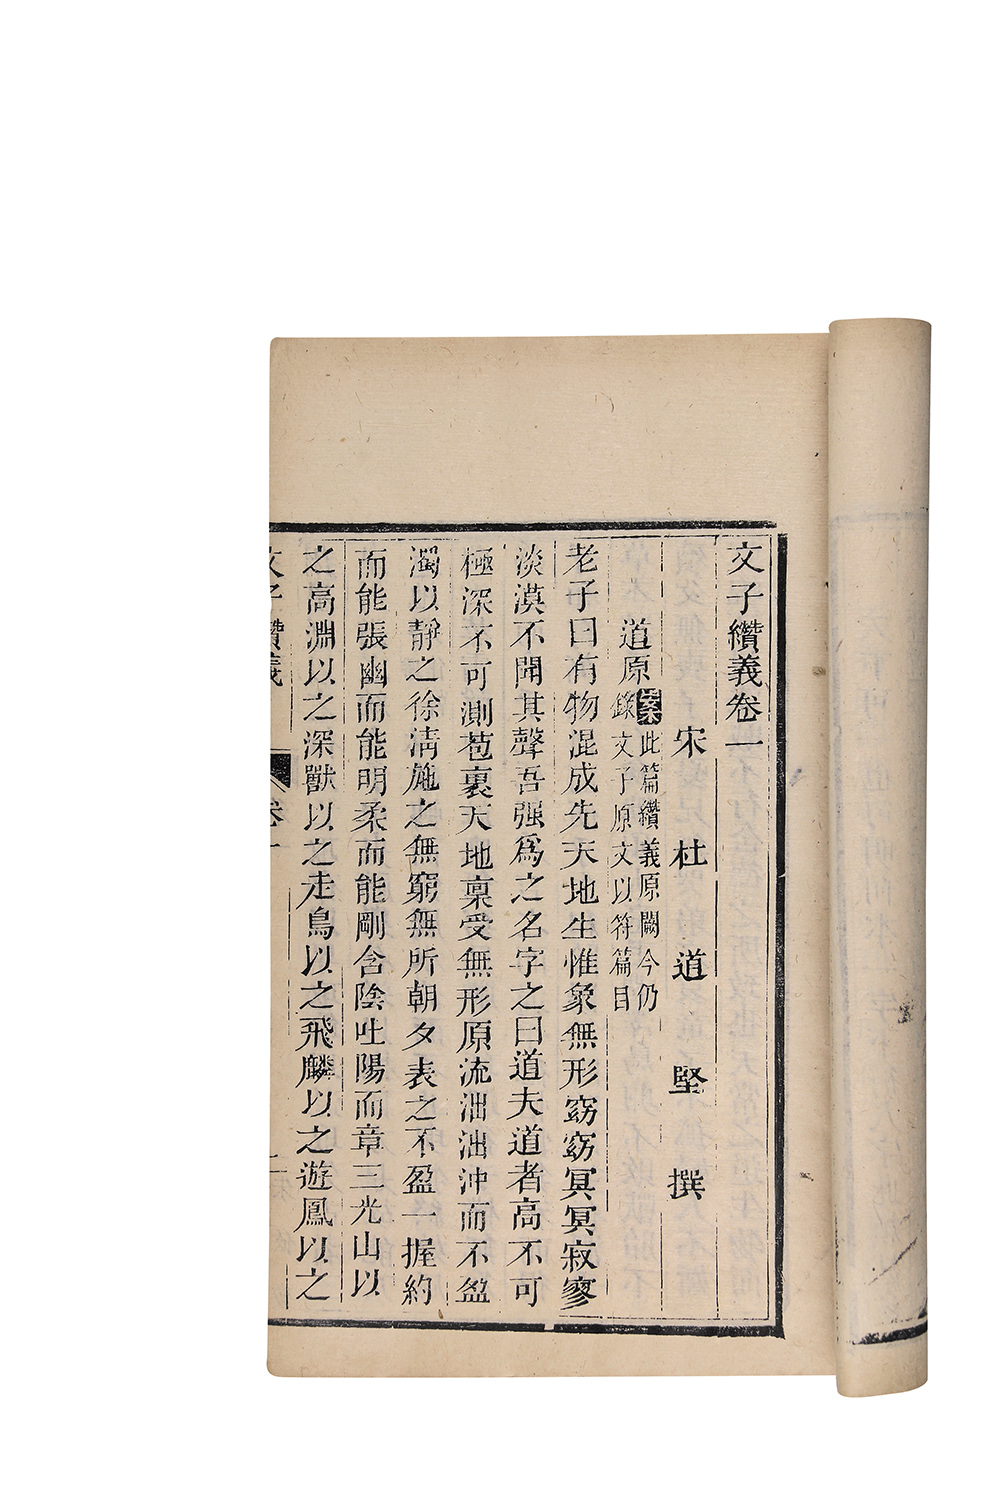 文子纘義卷一
宋杜道堅撰
道原
案此篇纘義原闕今仍
錄文子原文以符篇目
老子曰有物混成先天地生惟象無形窈窈冥冥寂寥
淡漠不聞其聲吾强爲之名字之曰道夫道者高不可
極深不可測苞裹天地稟受無形原流泏泏沖而不盈
濁以靜之徐淸施之無窮無所朝夕表之不盈一握約
而能張幽而能明柔而能剛含陰吐陽而章三光山以
之高淵以之深獸以之走鳥以之飛麟以之遊鳳以之
文子纘義
卷一